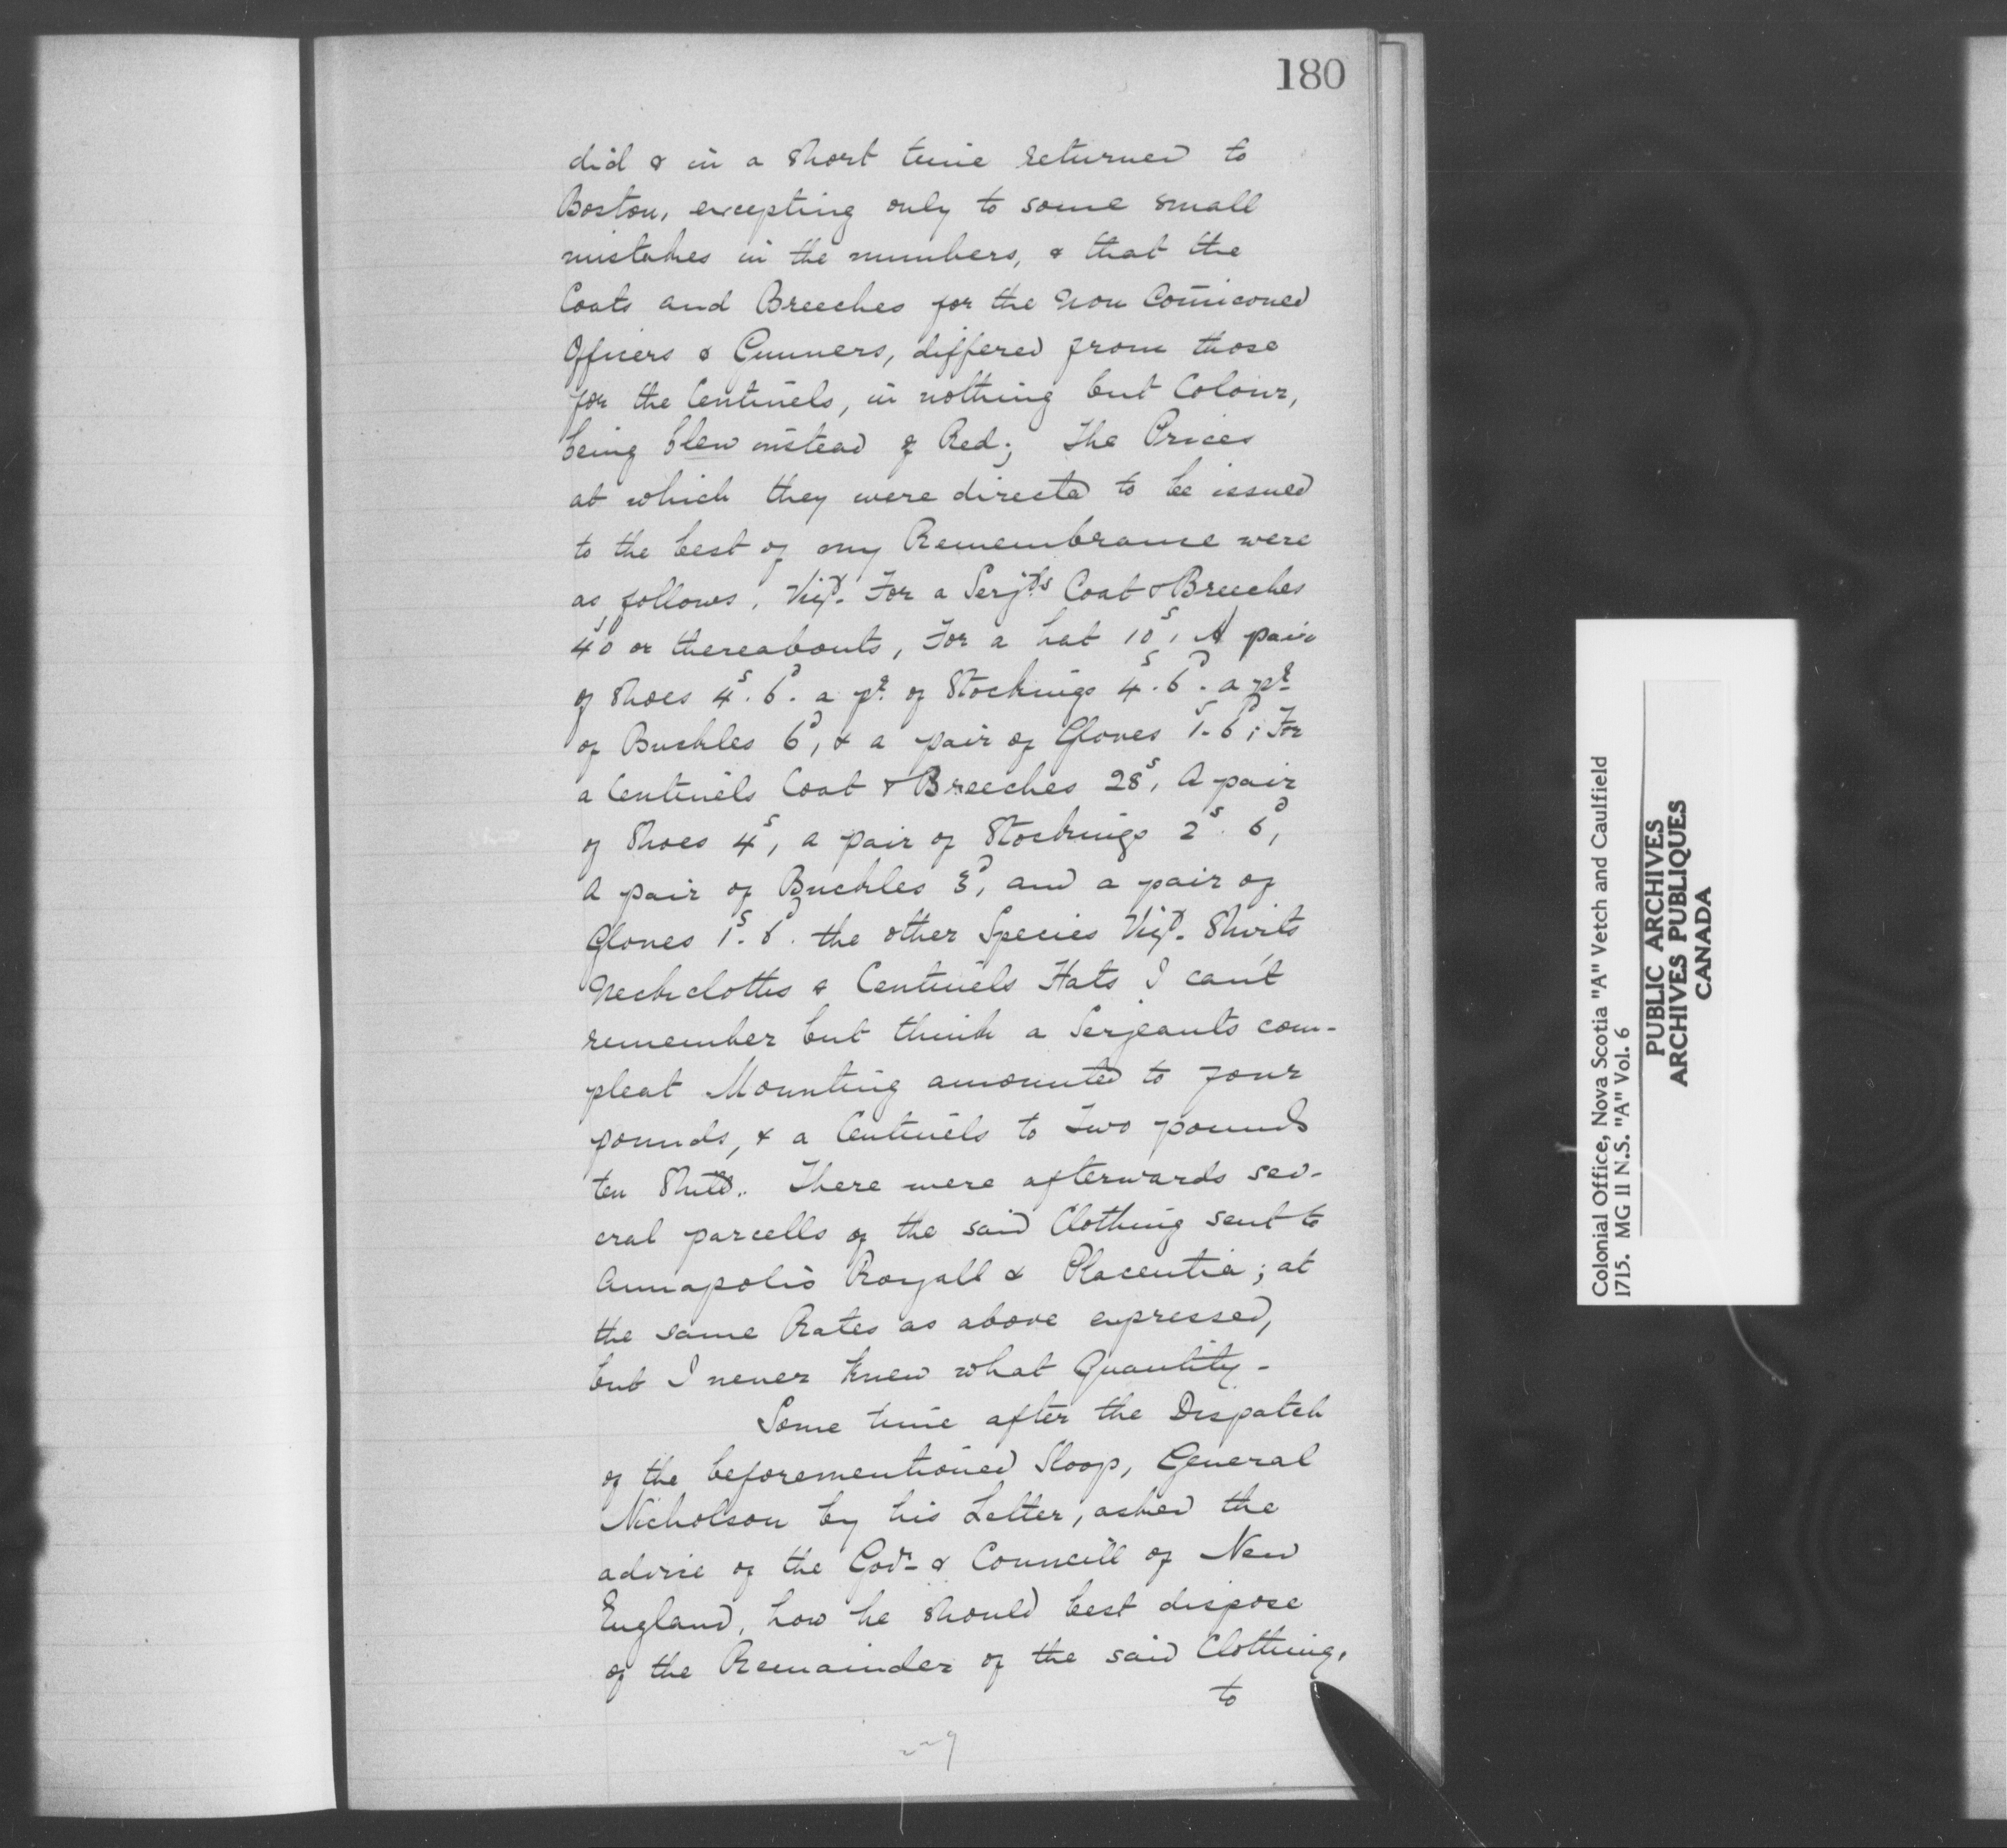 180
did & in a short time returned to
Boston, excepting only to some small
mistakes in the numbers, & that the
Coats and Breeches for the non Comiconed
Officers & Gunners, differed from those
for the Centinels, in nothing but Colour,
being blew instead of Red; The Prices
at which they were directed to be issued
to the best of my Remembrance were
as follows, Vizt. For a Serjts Coat & Breeches
40s or thereabouts, For a hat 10s, A pair
of Shoes 4s. 6d. a pr. of Stockings 4s. 6d. a pr.
of Buckles 6d, & a pair of Gloves 1s. 6d; For
a Centinels Coat & Breeches 28s, A pair
of Shoes 4s, a pair of Stockings 2s. 6d,
A pair of Buckles 3d, and a pair of
Gloves 1s. 6d. the other Species Vizt. Shirts
Neckclothes & Centinels Hats I can't
remember but think a Serjeants com-
pleat Mounting amounted to four
pounds, & a Centinels to Two pounds
ten Shills. There were afterwards sev-
eral parcells of the said Clothing sent to
Annapolis Royall & Placentia; at
the same Rates as above expressed,
but I never knew what Quantity -
Some time after the Dispatch
of the beforementioned Sloop, General
Nicholson by his Letter, asked the
advice of the Govr. & Councill of New
England, how he should best dispose
of the Remainder of the said Clothing,
to
Colonial Office, Nova Scotia "A" Vetch and Caulfield
1715. MG 11 N.S. "A" Vol. 6
PUBLIC ARCHIVES
ARCHIVES PUBLIQUES
CANADA